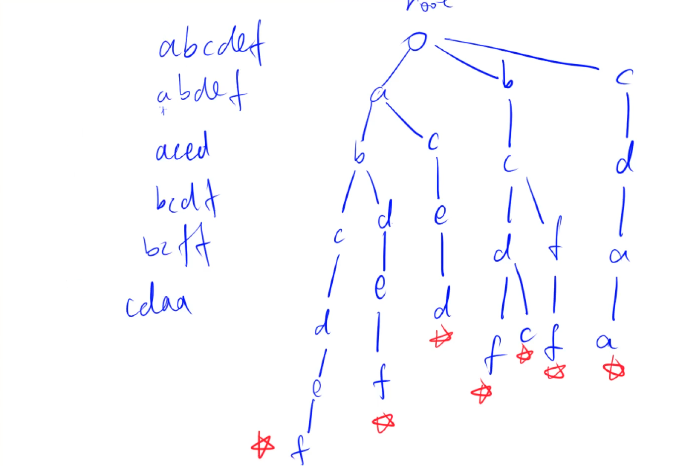 root
abcdef
abdef
aced
bcdf
bcff
cdaa
a b c
b c c d
c d e d f a
d e d f c f a
e f
f